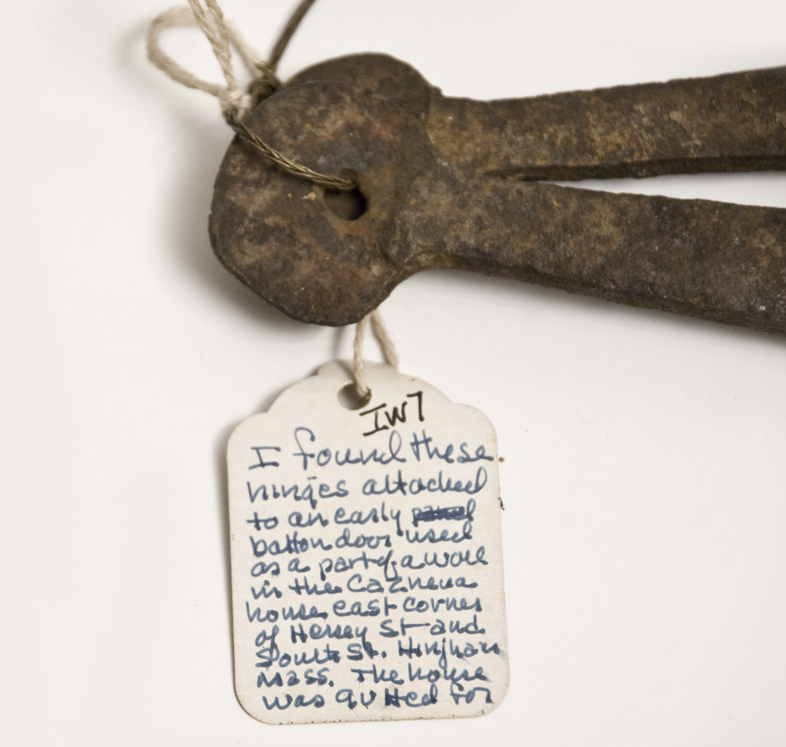 IW7
I found these
hinges attached
to an early panel
batton door used
as a part of a wall
in the Cazneua
house east corner
of Hersey St and
South St. Hingham
Mass. The house
was gutted for